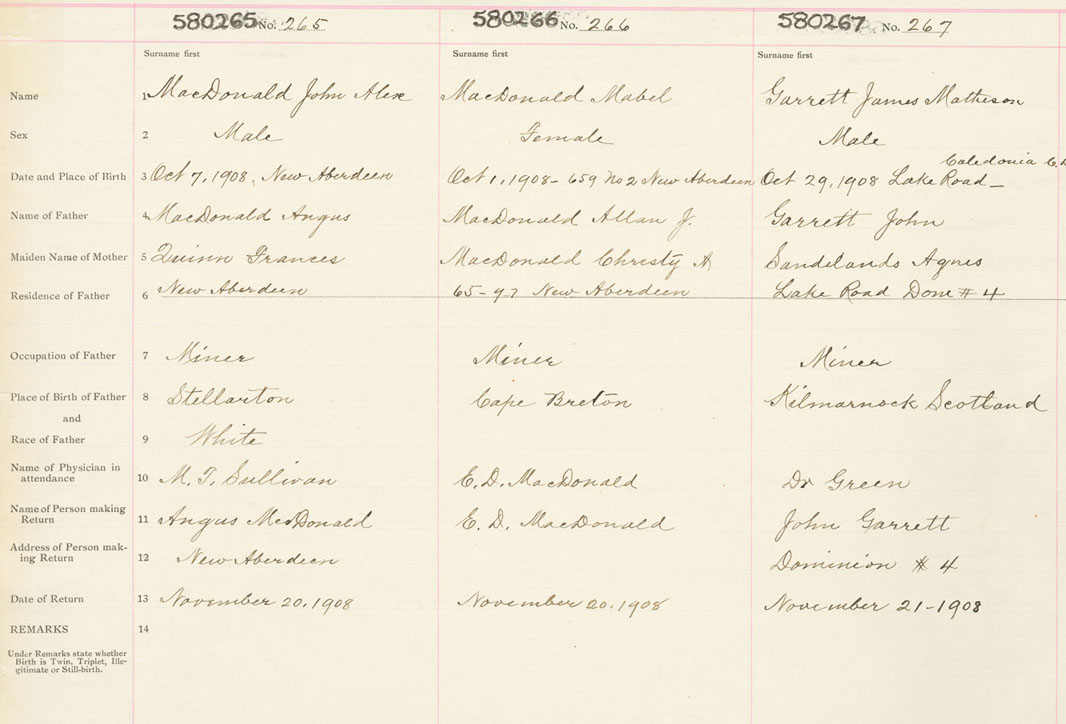 580265 No. 265 580266 No. 266 580267 No. 267
Surname first Surname first Surname first
Name 1 MacDonald John Alex MacDonald Mabel Garrett James Matheson
Sex 2 Male Female Male
Caledonia C.B.
Date and Place of Birth 3 Oct 7, 1908, New Aberdeen Oct 1, 1908 - 659 No 2 New Aberdeen Oct 29, 1908 Lake Road -
Name of Father 4 MacDonald Angus MacDonald Allan J. Garrett John
Maiden Name of Mother 5 Quinn Frances MacDonald Christy A Sandelands Agnes
Residence of Father 6 New Aberdeen 65-97 New Aberdeen Lake Road Dom # 4
Occupation of Father 7 Miner Miner Miner
Place of Birth of Father 8 Stellarton Cape Breton Kilmarnock Scotland
and
Race of Father 9 White
Name of Physician in
attendance 10 M. T. Sullivan E. D. MacDonald Dr Green
Name of Person making
Return 11 Angus McDonald E. D. MacDonald John Garrett
Address of Person mak-
ing Return 12 New Aberdeen Dominion # 4
Date of Return 13 November 20, 1908 November 20, 1908 November 21-1908
REMARKS 14
Under Remarks state whether
Birth is Twin, Triplet, Ille-
gitimate or Still-birth.